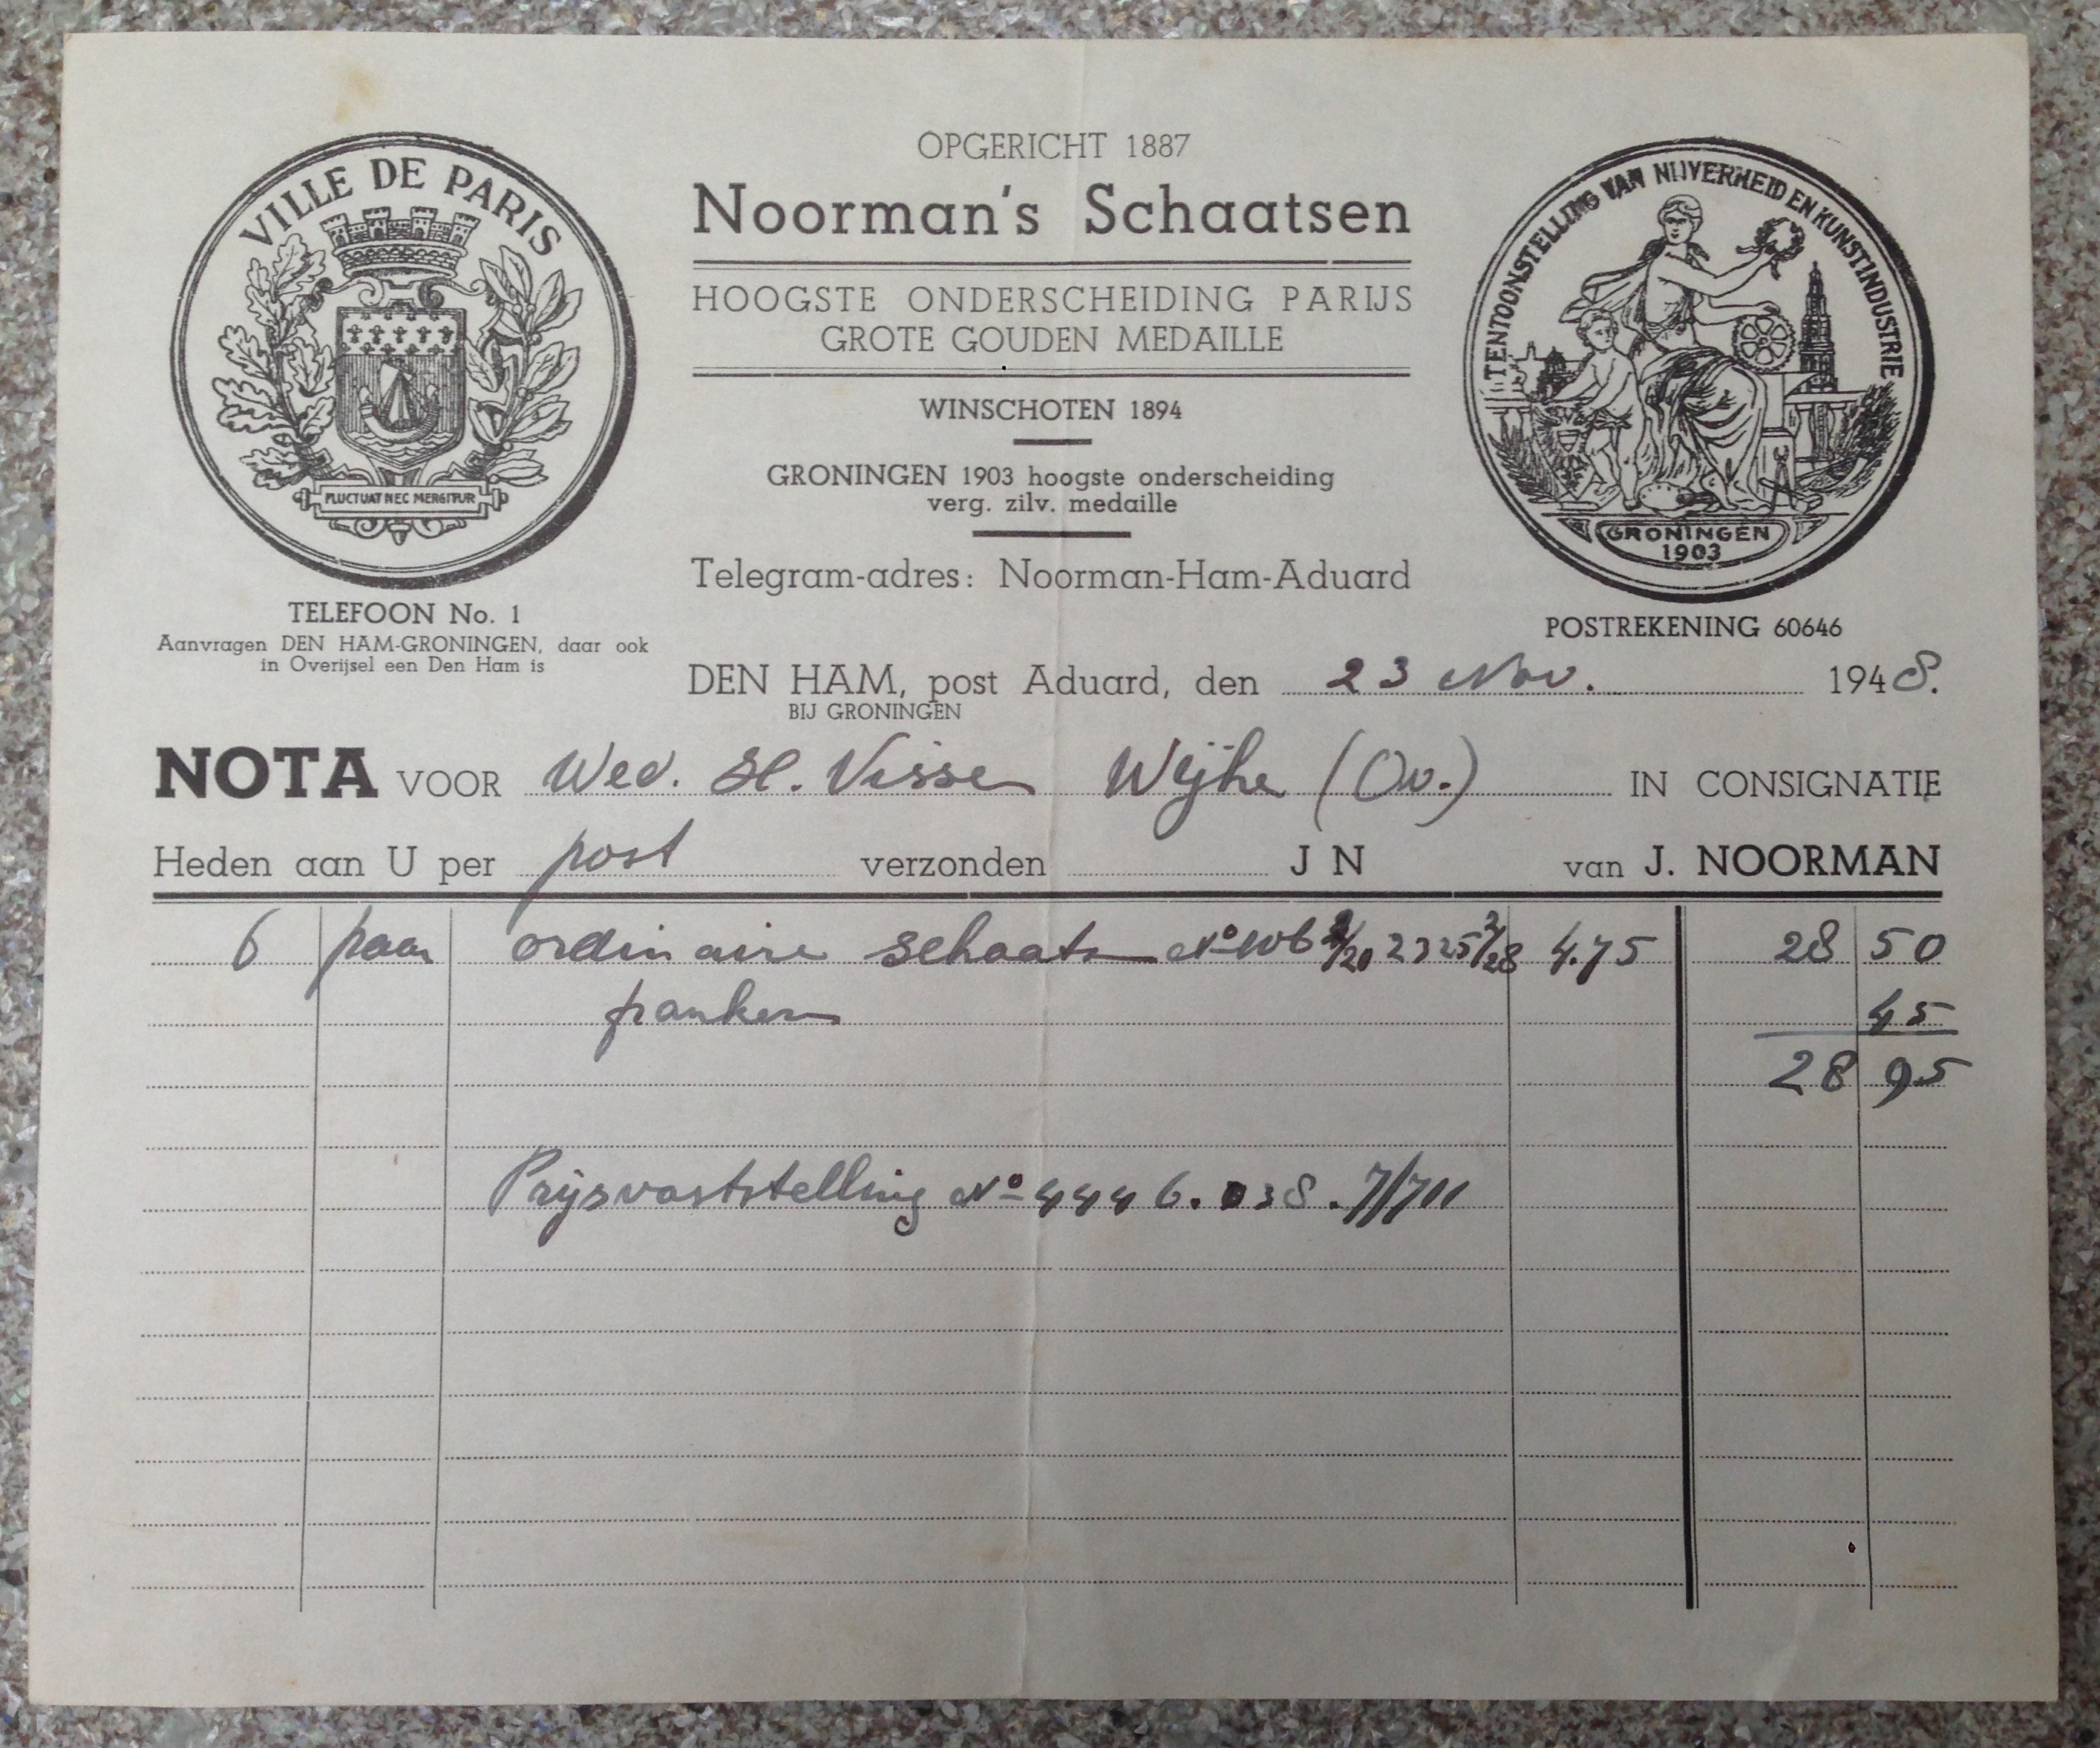 OPGERICHT 1887
Noorman's Schaatsen
HOOGSTE ONDERSCHEIDING PARIJS
GROTE GOUDEN MEDAILLE
WINSCHOTEN 1894
GRONINGEN 1903 hoogste onderscheiding
verg. zilv. medaille
Telegram-adres: Noorman-Ham-Aduard
VILLE DE PARIS
FLUCTUAT NEC MERGITUR
TELEFOON No. 1
Aanvragen DEN HAM-GRONINGEN, daar ook
in Overijsel een Den Ham is
TENTOONSTELLING VAN NIJVERHEID EN KUNSTINDUSTRIE
GRONINGEN
1903
POSTREKENING 60646
DEN HAM, post Aduard, den 23 Nov. 1948.
BIJ GRONINGEN
NOTA VOOR Wed. H. Visser Wijhe (Ov.) IN CONSIGNATIE
Heden aan U per post verzonden J N van J. NOORMAN
6 paar ordinaire schaats No 4.75 28 50
franken 45
28 95
Prijsvaststelling No 4446.038.